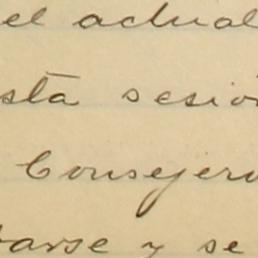 el actual
sta sesió
Consejero
arse y se